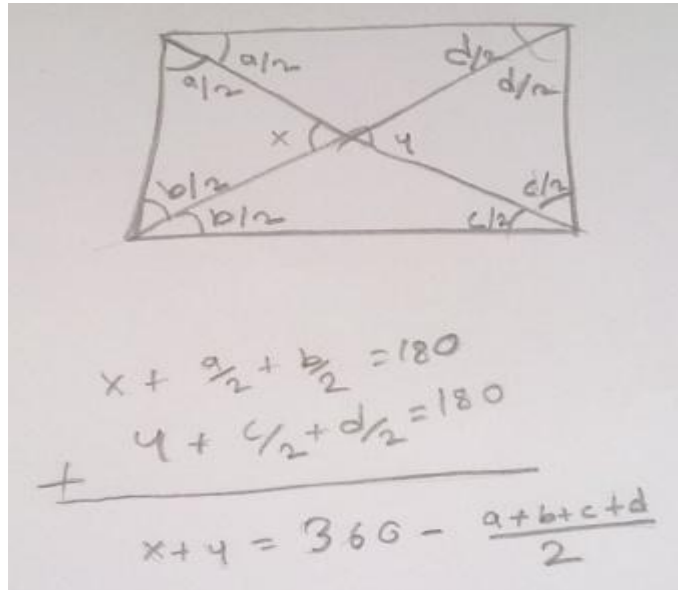 a/2 d/2
a/2 d/2
x y
b/2 c/2
b/2 c/2
x + a/2 + b/2 = 180
y + c/2 + d/2 = 180
+
x + y = 360 - (a+b+c+d)/2